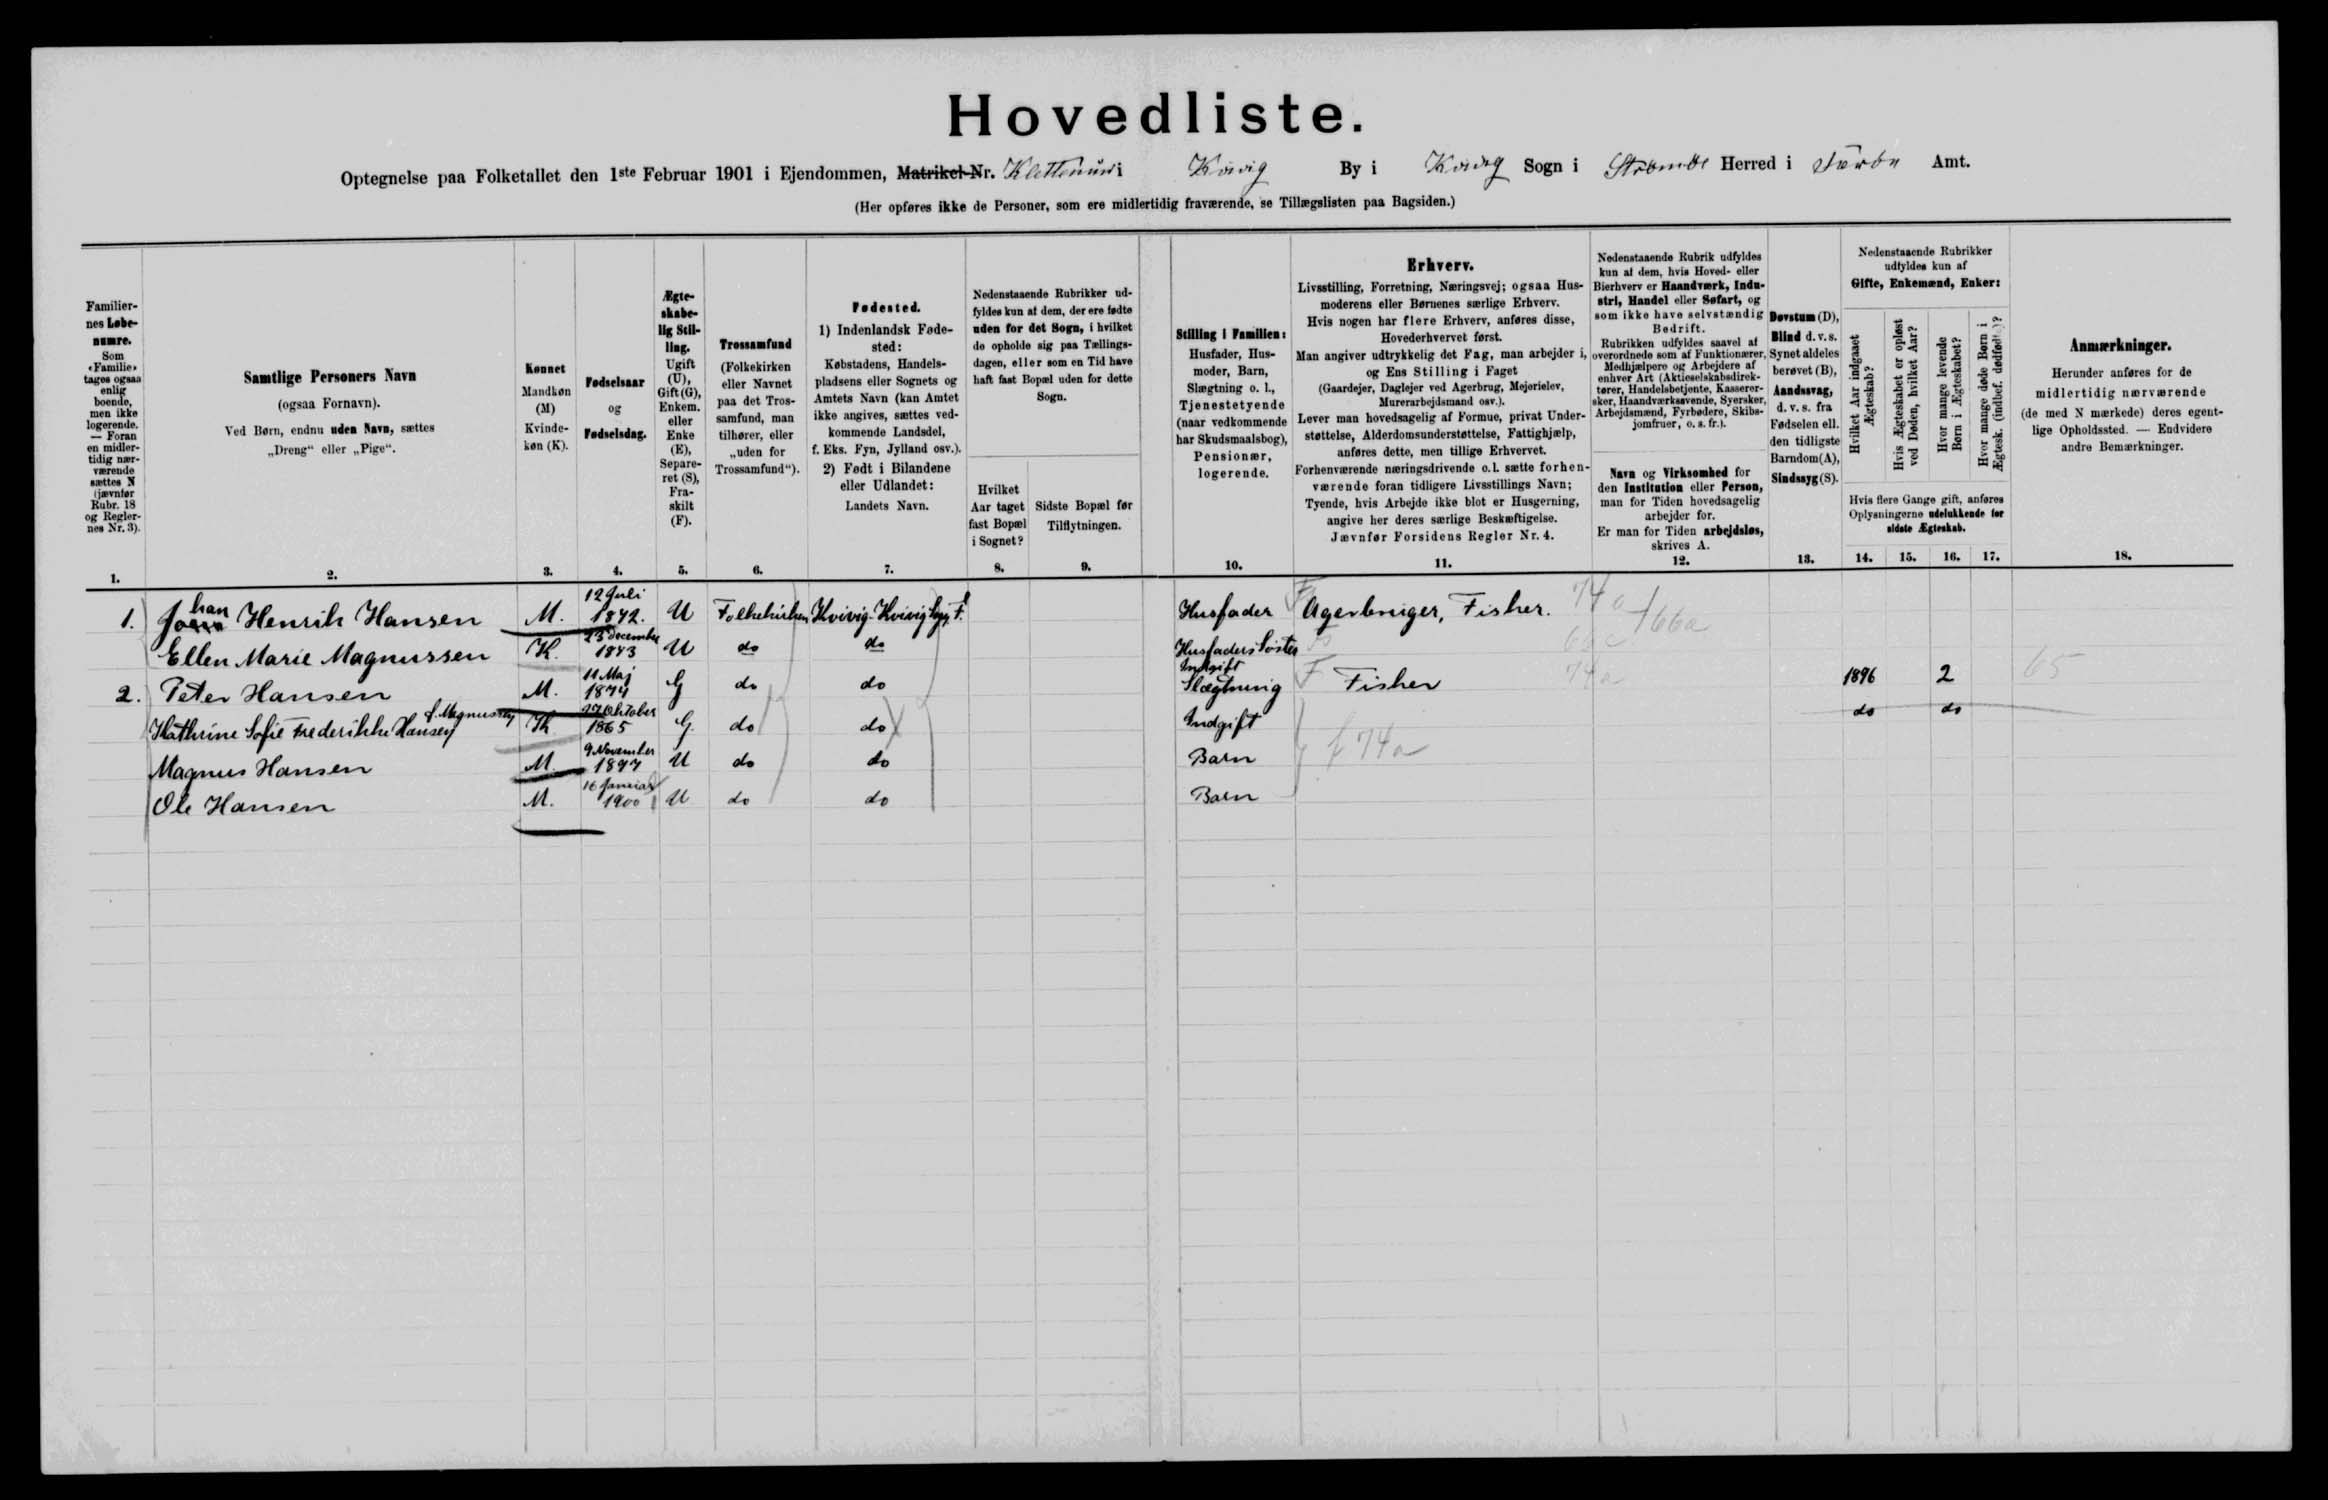 Hovedliste.
Optegnelse paa Folketallet den 1ste Februar 1901 i Ejendommen, Matrikel-Nr. i Kvivig By i Kvivig Sogn i Strømø Herred i Færø Amt.
(Her opføres ikke de Personer, som ere midlertidig fraværende, se Tillægslisten paa Bagsiden.)
Familier-
nes Løbe-
numre.
Som
«Familie»
tages ogsaa
enlig
boende,
men ikke
logerende.
— Foran
en midler-
tidig nær-
værende
sættes N
(jævnfør
Rubr. 18
og Regler-
nes Nr. 3).
1.
Samtlige Personers Navn
(ogsaa Fornavn).
Ved Børn, endnu uden Navn, sættes
„Dreng“ eller „Pige“.
2.
Kønnet
Mandkøn
(M)
Kvinde-
køn (K).
3.
Fødselsaar
og
Fødselsdag.
4.
Ægte-
skabe-
lig Stil-
ling.
Ugift
(U),
Gift (G),
Enkem.
eller
Enke
(E),
Separe-
ret (S),
Fra-
skilt
(F).
5.
Trossamfund
(Folkekirken
eller Navnet
paa det Tros-
samfund, man
tilhører, eller
„uden for
Trossamfund“).
6.
Fødested.
1) IndenlandskFøde-
sted:
Købstadens, Handels-
pladsens eller Sognets og
Amtets Navn (kan Amtet
ikke angives, sættes ved-
kommende Landsdel,
f. Eks. Fyn, Jylland osv.).
2) Født i Bilandene
eller Udlandet:
Landets Navn.
7.
Nedenstaaende Rubrikker ud-
fyldes kun af dem, der ere fødte
uden for det Sogn, i hvilket
de opholde sig paa Tællings-
dagen, eller som en Tid have
haft fast Bopæl uden for dette
Sogn.
Hvilket
Aar taget
fast Bopæl
i Sognet?
8.
Sidste Bopæl før
Tilflytningen.
9.
Stilling i Familien:
Husfader, Hus-
moder, Barn,
Slægtning o. l.,
Tjenestetyende
(naar vedkommende
har Skudsmaalsbog),
Pensionær,
logerende.
10.
Erhverv.
Livsstilling, Forretning, Næringsvej; ogsaa Hus-
moderens eller Børnenes særlige Erhverv.
Hvis nogen har flere Erhverv, anføres disse,
Hovederhvervet først.
Man angiver udtrykkelig det Fag, man arbejder i,
og Ens Stilling i Faget
(Gaardejer, Daglejer ved Agerbrug, Mejerielev,
Murerarbejdsmand osv.).
Lever man hovedsagelig af Formue, privat Under-
støttelse, Alderdomsunderstøttelse, Fattighjælp,
anføres dette, men tillige Erhvervet.
Forhenværende næringsdrivende o. l. sætte forhen-
værende foran tidligere Livsstillings Navn;
Tyende, hvis Arbejde ikke blot er Husgerning,
angive her deres særlige Beskæftigelse.
Jævnfør Forsidens Regler Nr. 4.
11.
Nedenstaaende Rubrik udfyldes
kun af dem, hvis Hoved- eller
Bierhverv er Haandværk, Indu-
stri, Handel eller Søfart, og
som ikke have selvstændig
Bedrift.
Rubrikken udfyldes saavel af
overordnede som af Funktionærer,
Medhjælpere og Arbejdere af
enhver Art (Aktieselskabsdirek-
tører, Handelsbetjente, Kasserer-
sker, Haandværkssvende, Syersker,
Arbejdsmænd, Fyrbødere, Skibs-
jomfruer, o. s. fr.).
Navn og Virksomhed for
den Institution eller Person,
man for Tiden hovedsagelig
arbejder for.
Er man for Tiden arbejdsløs,
skrives A.
12.
Døvstum (D),
Blind d. v. s.
Synet aldeles
berøvet (B),
Aandssvag,
d. v. s. fra
Fødselen ell.
den tidligste
Barndom (A),
Sindssyg (S).
13.
Nedenstaaende Rubrikker
udfyldes kun af
Gifte, Enkemænd, Enker:
Hvilket Aar indgaaet
Ægteskab?
Hvis Ægteskabet er opløst
ved Døden, hvilket Aar?
Hvor mange levende
Børn i Ægteskabet?
Hvor mange døde Børn i
Ægtesk. (indbef. dødfødte)?
Hvis flere Gange gift, anføres
Oplysningerne udelukkende for
sidste Ægteskab.
14. 15. 16. 17.
Anmærkninger.
Herunder anføres for de
midlertidig nærværende
(de med N mærkede) deres egent-
lige Opholdssted. — Endvidere
andre Bemærkninger.
18.
1. Johan Henrik Hansen M. 12 Juli 1872. U Folkekirken Kvivig Kvivig F. Husfader F Agerbruger, Fisker. 74a / 66a
Ellen Marie Magnussen K. 23 december 1843 U do do Husfaders Søster
2. Peter Hansen M. 11 Maj 1874 G do do Indgift Slægtning F Fisker 74a 1896 2 65
Kathrine Sofie Frederikke Hansen f. Magnussen K 27 Oktober 1865 G. do do Indgift do do
Magnus Hansen M. 9 November 1897 U do do Barn f 74a
Ole Hansen M. 16 Januar 1900 U do do Barn